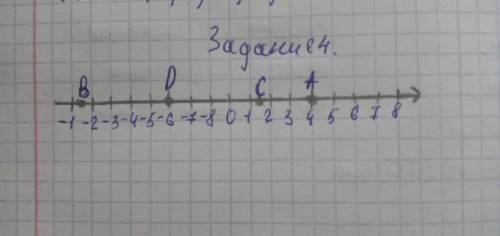 Задание 4.
B D C A
-1 -2 -3 -4 -5 -6 -7 -8 0 1 2 3 4 5 6 7 8